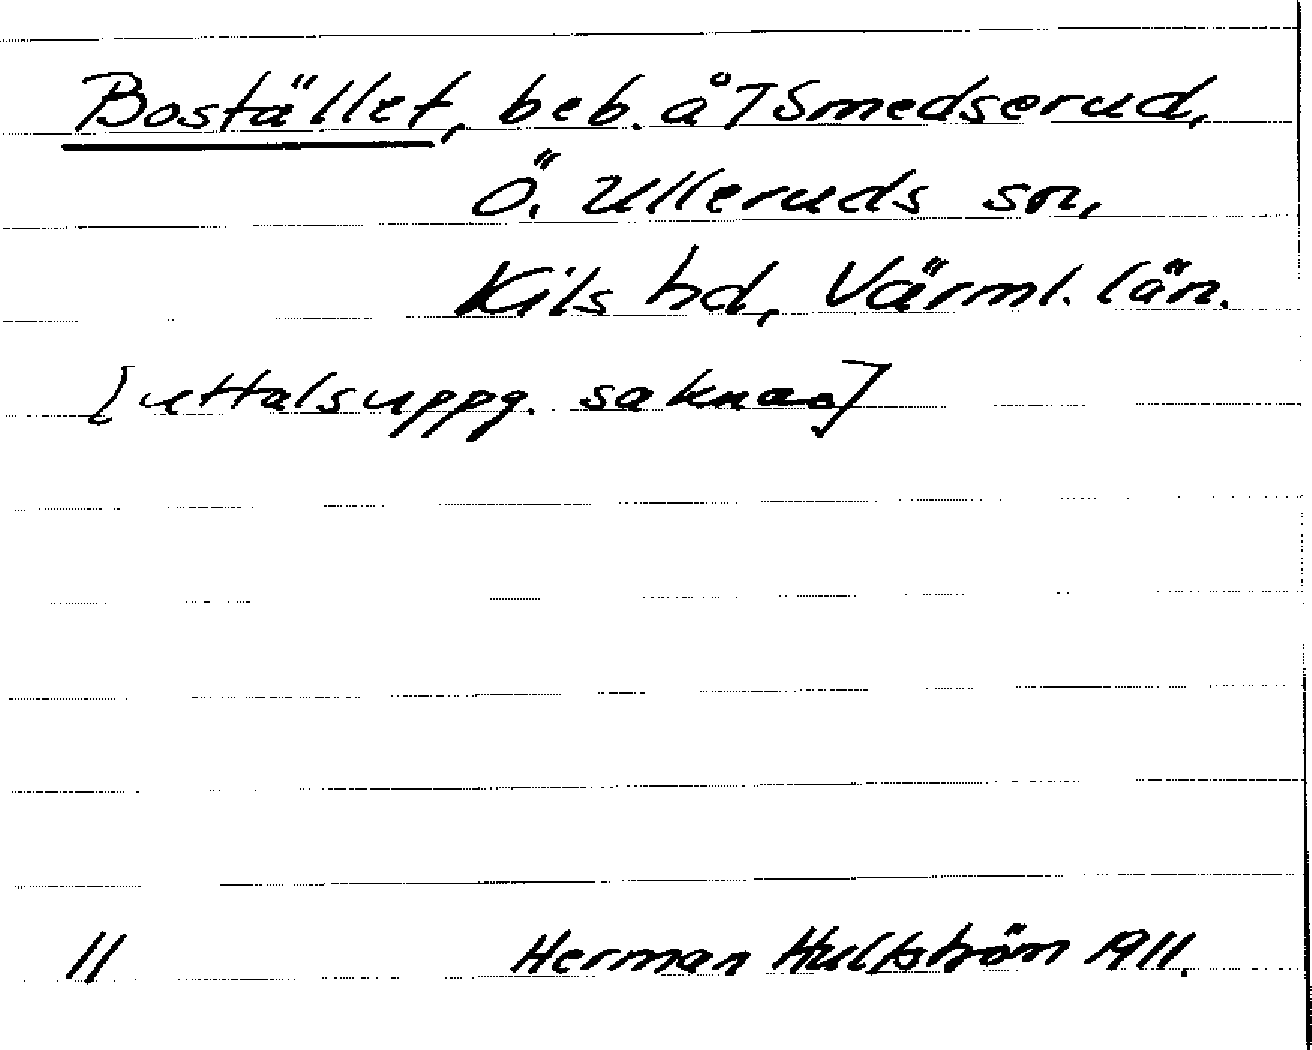 Bostället, beb. å Tsmedserud,
Ö. Ulleruds sn,
Kils hd, Värml. län.
[uttalsuppg. saknas]
11 Herman Hultström 1911.